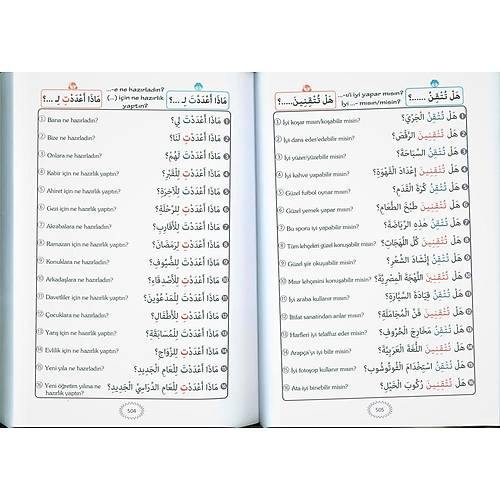 مَاذَا أَعْدَدْتِ لِـ ...؟
...-e ne hazırladın?
(..) için ne hazırlık
yaptın?
مَاذَا أَعْدَدْتَ لِـ ...؟
① Bana ne hazırladın? مَاذَا أَعْدَدْتَ لِي؟ 1
② Bize ne hazırladın? مَاذَا أَعْدَدْتِ لَنَا؟ 2
③ Onlara ne hazırladın? مَاذَا أَعْدَدْتَ لَهُمْ؟ 3
④ Kabir için ne hazırlık yaptın? مَاذَا أَعْدَدْتِ لِلْقَبْرِ؟ 4
⑤ Ahiret için ne hazırlık yaptın? مَاذَا أَعْدَدْتَ لِلْآخِرَةِ؟ 5
⑥ Gezi için ne hazırlık yaptın? مَاذَا أَعْدَدْتِ لِلرِّحْلَةِ؟ 6
⑦ Akrabalara ne hazırladın? مَاذَا أَعْدَدْتَ لِلْأَقَارِبِ؟ 7
⑧ Ramazan için ne hazırlık yaptın? مَاذَا أَعْدَدْتِ لِرَمَضَانَ؟ 8
⑨ Konuklara ne hazırladın? مَاذَا أَعْدَدْتَ لِلضُّيُوفِ؟ 9
⑩ Arkadaşlara ne hazırladın? مَاذَا أَعْدَدْتِ لِلْأَصْدِقَاءِ؟ 10
⑪ Davetliler için ne hazırladın? مَاذَا أَعْدَدْتَ لِلْمَدْعُوِّينَ؟ 11
⑫ Çocuklara ne hazırladın? مَاذَا أَعْدَدْتِ لِلْأَطْفَالِ؟ 12
⑬ Yarış için ne hazırladın? مَاذَا أَعْدَدْتَ لِلْمُسَابَقَةِ؟ 13
⑭ Evlilik için ne hazırladın? مَاذَا أَعْدَدْتِ لِلزَّوَاجِ؟ 14
⑮ Yeni yıla ne hazırladın? مَاذَا أَعْدَدْتَ لِلْعَامِ الْجَدِيدِ؟ 15
⑯ Yeni öğretim yılına ne
hazırlık yaptın? مَاذَا أَعْدَدْتِ لِلْعَامِ الدِّرَاسِيِّ الْجَدِيدِ؟ 16
504
هَلْ تُتْقِنِينَ.....؟
...-ı/i iyi yapar mısın?
İyi ...-mısın/misin?
هَلْ تُتْقِنُ ......؟
① İyi koşar mısın/koşabilir misin? هَلْ تُتْقِنُ الْجَرْيَ؟ 1
② İyi dans eder/edebilir misin? هَلْ تُتْقِنِينَ الرَّقْصَ؟ 2
③ İyi yüzer/yüzebilir misin? هَلْ تُتْقِنُ السِّبَاحَةَ؟ 3
④ İyi kahve yapabilir misin? هَلْ تُتْقِنِينَ إِعْدَادَ الْقَهْوَةِ؟ 4
⑤ Güzel futbol oynar mısın? هَلْ تُتْقِنُ كُرَةَ الْقَدَمِ؟ 5
⑥ Güzel yemek yapar mısın? هَلْ تُتْقِنِينَ طَبْخَ الطَّعَامِ؟ 6
⑦ Bu sporu iyi yapabilir misin? هَلْ تُتْقِنُ هَذِهِ الرِّيَاضَةَ؟ 7
⑧ Tüm lehçeleri güzel konuşabilir misin? هَلْ تُتْقِنِينَ كُلَّ اللَّهَجَاتِ؟ 8
⑨ Güzel şiir okuyabilir misin? هَلْ تُتْقِنُ إِنْشَادَ الشِّعْرِ؟ 9
⑩ Mısır lehçesini konuşabilir misin? هَلْ تُتْقِنِينَ اللَّهْجَةَ الْمِصْرِيَّةَ؟ 10
⑪ İyi araba kullanır mısın? هَلْ تُتْقِنُ قِيَادَةَ السَّيَّارَةِ؟ 11
⑫ İltifat sanatından anlar mısın? هَلْ تُتْقِنِينَ فَنَّ الْمُجَامَلَةِ؟ 12
⑬ Harfleri iyi telaffuz eder misin? هَلْ تُتْقِنُ مَخَارِجَ الْحُرُوفِ؟ 13
⑭ Arapça'yı iyi bilir misin? هَلْ تُتْقِنِينَ اللُّغَةَ الْعَرَبِيَّةَ؟ 14
⑮ İyi fotoşop kullanır mısın? هَلْ تُتْقِنُ اسْتِخْدَامَ الْفُوتُوشُوبِ؟ 15
⑯ Ata iyi binebilir misin? هَلْ تُتْقِنِينَ رُكُوبَ الْخَيْلِ؟ 16
505